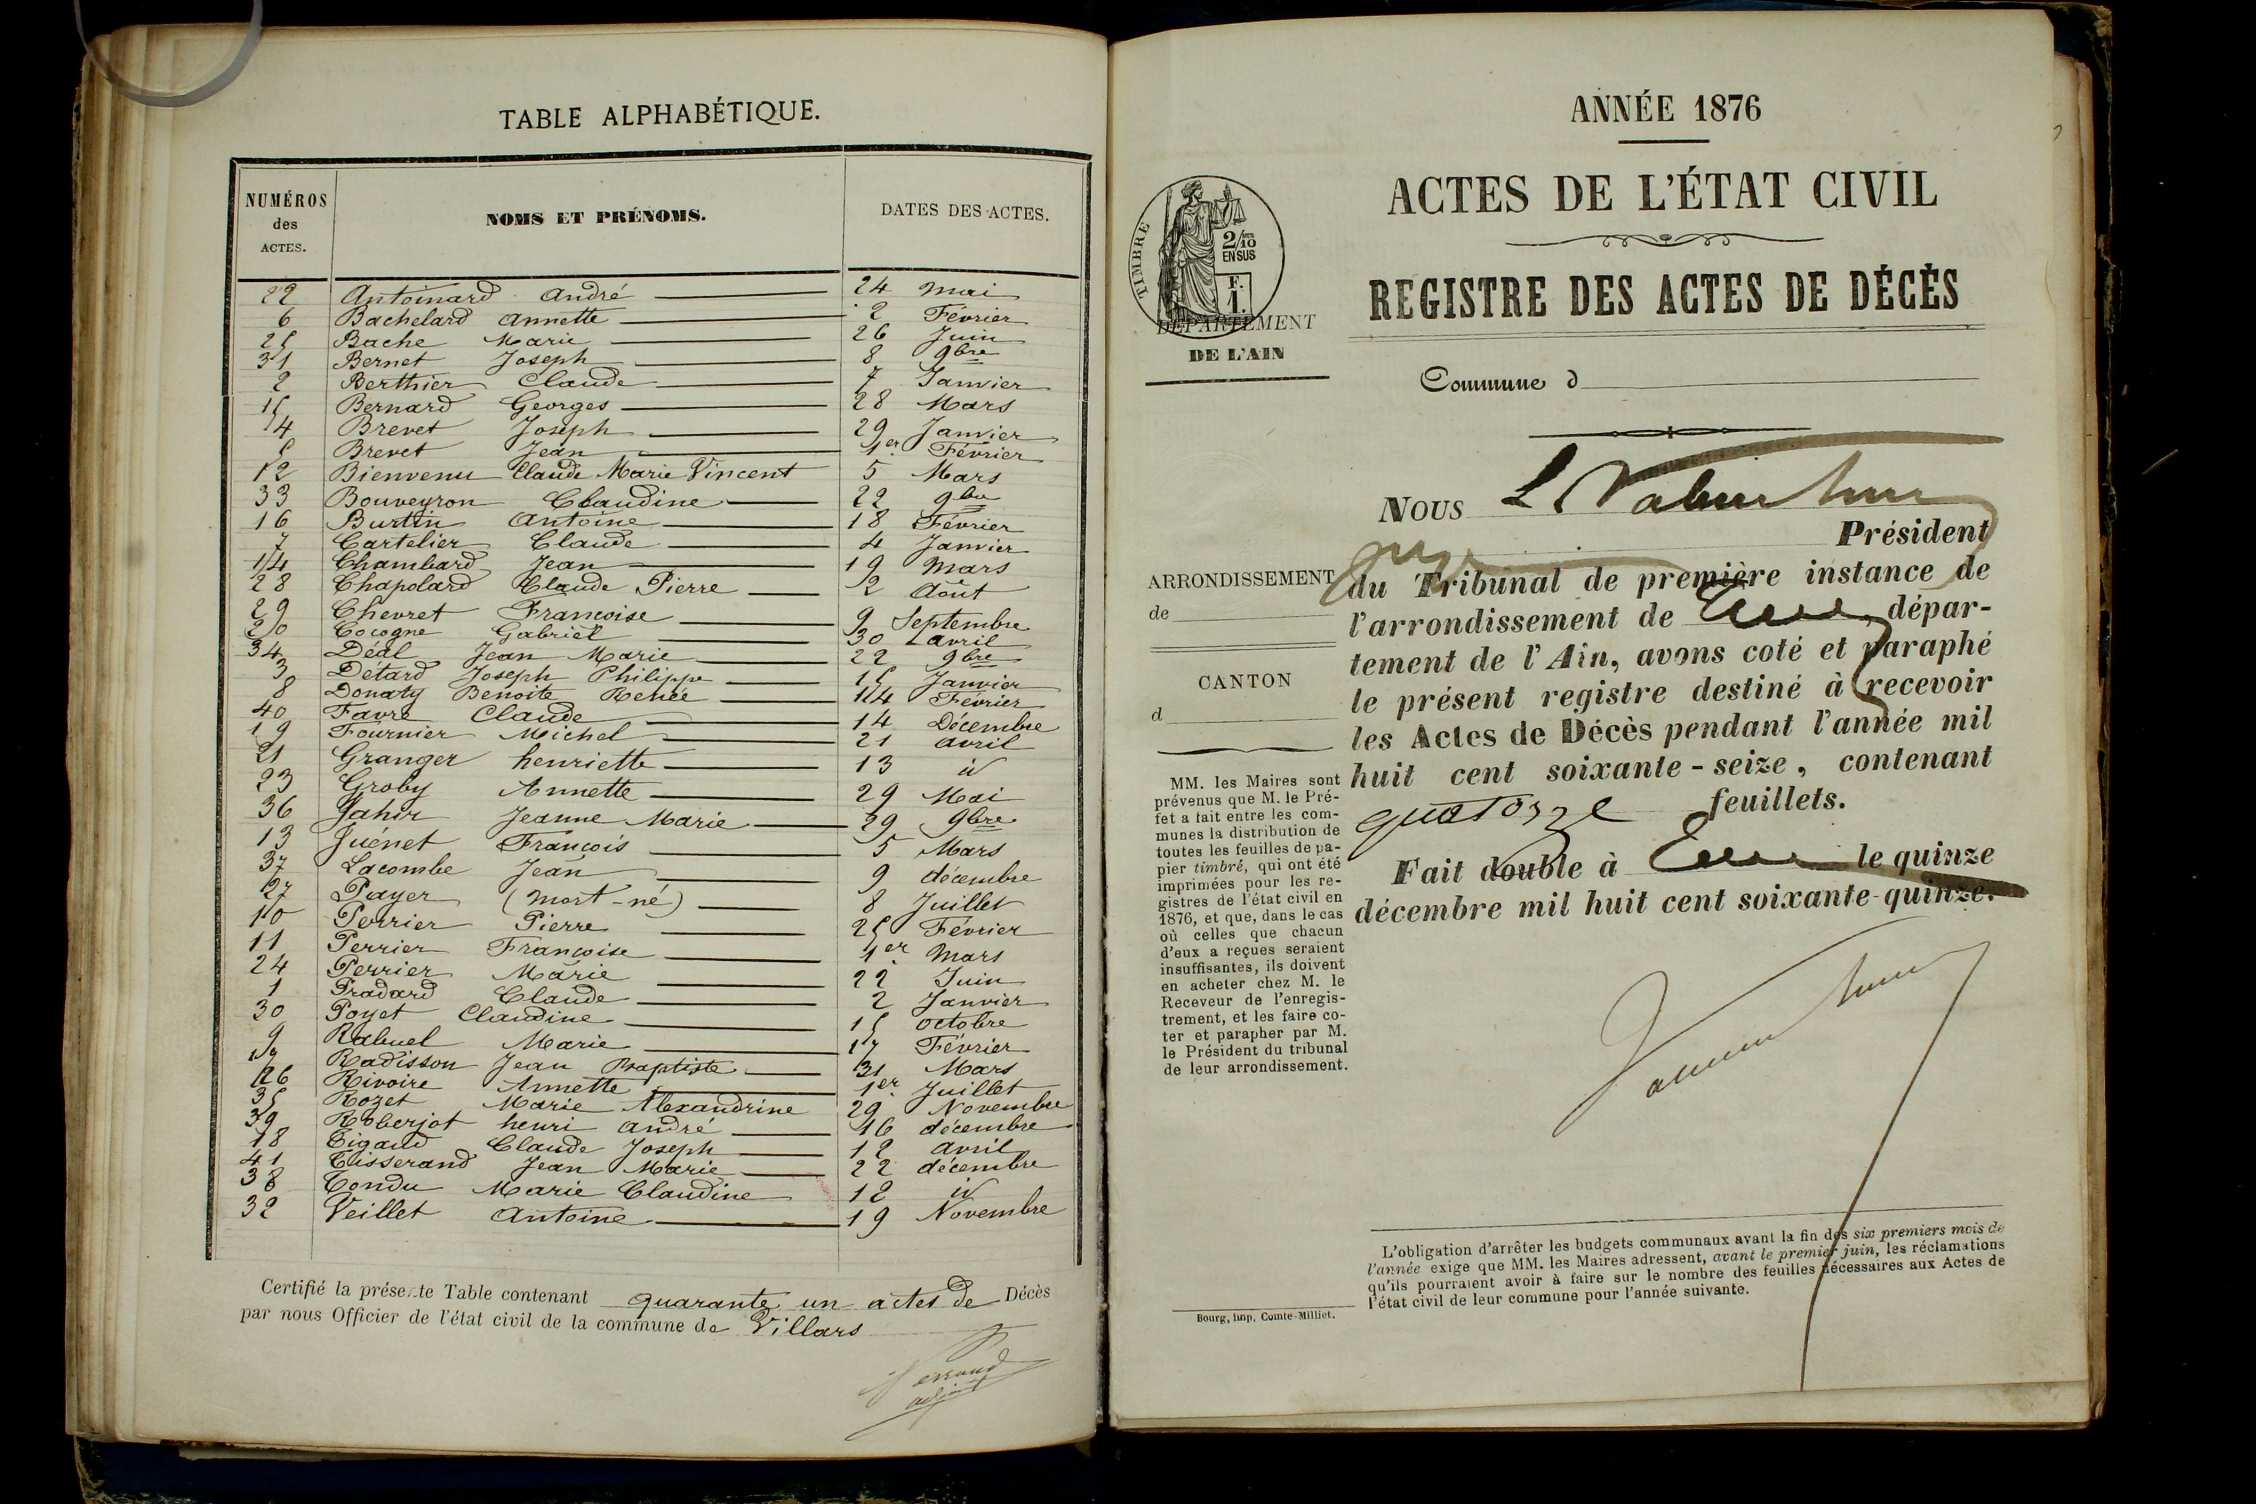 TABLE ALPHABÉTIQUE.
NUMÉROS des ACTES. NOMS ET PRÉNOMS. DATES DES ACTES.
22 Antoinard André 24 Mai
6 Bachelard Annette 2 Février
25 Bache Marie 26 Juin
31 Bernet Joseph 8 9bre
2 Berthier Claude 7 Janvier
15 Bernard Georges 28 Mars
4 Brevet Joseph 29 Janvier
5 Brevet Jean 1er Février
12 Bienvenu Claude Marie Vincent 5 Mars
33 Bouveyron Claudine 22 9bre
16 Burtin Antoine 18 Février
7 Cartelier Claude 4 Janvier
14 Chambard Jean 19 Mars
28 Chapolard Claude Pierre 2 Août
29 Chevret Françoise 9 Septembre
20 Cocogne Gabriel 30 avril
34 Déal Jean Marie 22 9bre
3 Détard Joseph Philippe 15 Janvier
8 Donaty Benoite Renée 14 Février
40 Favre Claude 14 Décembre
19 Fournier Michel 21 avril
21 Granger henriette 13 id
23 Groby Annette 29 Mai
36 Jeanne Marie 29 9bre
13 Juénet François 5 Mars
37 Lacombe Jean 9 décembre
27 Payer (mort-né) 8 Juillet
10 Perrier Pierre 25 Février
11 Perrier Françoise 1er Mars
24 Perrier Marie 22 Juin
1 Pradard Claude 2 Janvier
30 Poyet Claudine 15 octobre
9 Rabuel Marie 17 Février
17 Radisson Jean Baptiste 31 Mars
26 Rivoire Annette 1er Juillet
35 Rozet Marie Alexandrine 29 Novembre
39 Roberjot henri andré 16 décembre
18 Tigaud Claude Joseph 12 avril
41 Tisserand Jean Marie 22 décembre
38 Tondu Marie Claudine 12 id
32 Veillet Antoine 19 Novembre
Certifié la présente Table contenant quarante un actes de Décès
par nous Officier de l'état civil de la commune de Villars
adjoint
ANNÉE 1876
ACTES DE L'ÉTAT CIVIL
REGISTRE DES ACTES DE DÉCÈS
TIMBRE
2/10
EN SUS
F.
1.
DÉPARTEMENT
DE L'AIN
Commune d
Nous
Président
juge
du Tribunal de première instance de
l'arrondissement de , dépar-
tement de l'Ain, avons coté et paraphé
le présent registre destiné à recevoir
les Actes de Décès pendant l'année mil
huit cent soixante-seize, contenant
quatorze feuillets.
Fait double à le quinze
décembre mil huit cent soixante-quinze.
ARRONDISSEMENT
de
CANTON
d
MM. les Maires sont
prévenus que M. le Pré-
fet a fait entre les com-
munes la distribution de
toutes les feuilles de pa-
pier timbré, qui ont été
imprimées pour les re-
gistres de l'état civil en
1876, et que, dans le cas
où celles que chacun
d'eux a reçues seraient
insuffisantes, ils doivent
en acheter chez M. le
Receveur de l'enregis-
trement, et les faire co-
ter et parapher par M.
le Président du tribunal
de leur arrondissement.
L'obligation d'arrêter les budgets communaux avant la fin des six premiers mois de
l'année exige que MM. les Maires adressent, avant le premier juin, les réclamations
qu'ils pourraient avoir à faire sur le nombre des feuilles nécessaires aux Actes de
l'état civil de leur commune pour l'année suivante.
Bourg, imp. Comte-Milliet.